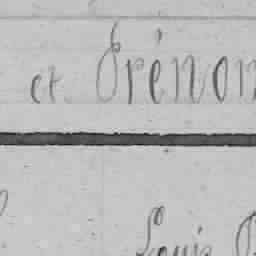 et Prénon
Louis